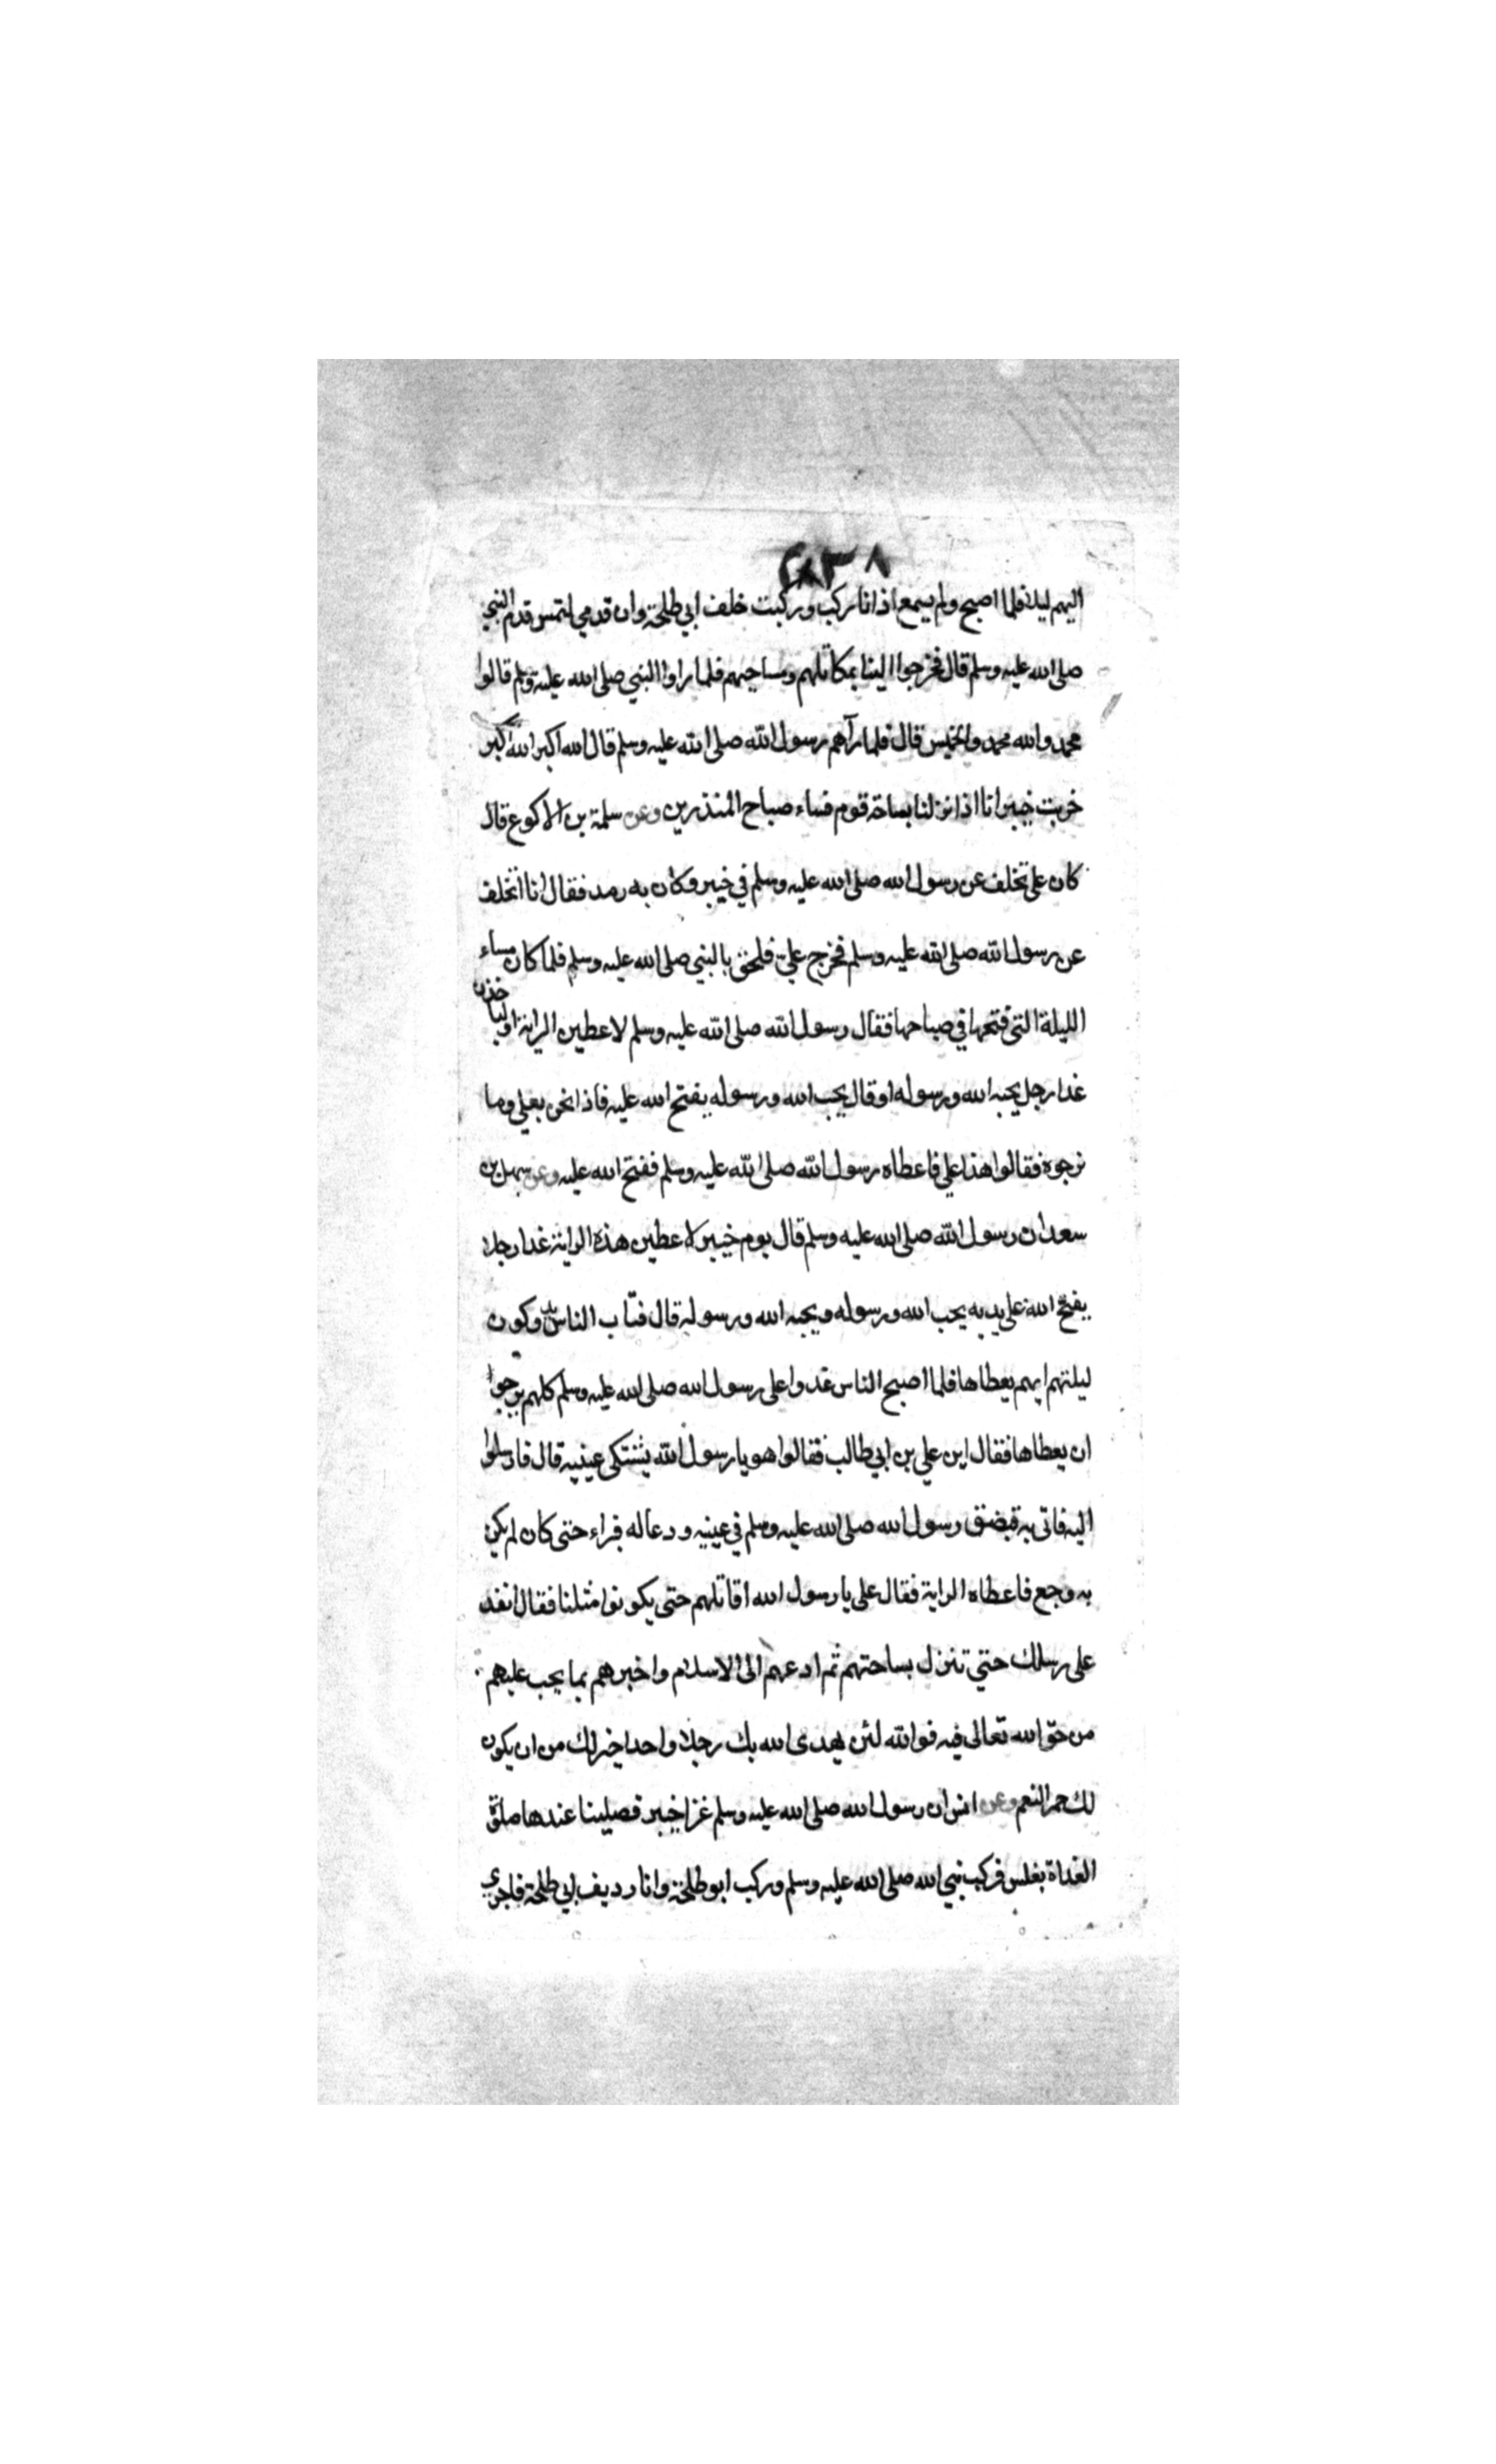 اليهم ليلا فلما اصبح ولم يسمع اذانا ركب وركبت خلف ابي طلحة وان قدمي لتمس قدم النبي
صلى الله عليه وسلم قال فخرجوا الينا بمكاتلهم ومساحيهم فلما راوا النبي صلى الله عليه وسلم قالوا
محمد والله محمد والخميس قال فلما رآهم رسول الله صلى الله عليه وسلم قال الله اكبر الله اكبر
خربت خيبر انا اذا نزلنا بساحة قوم فساء صباح المنذرين وعن سلمة بن الاكوع قال
كان علي تخلف عن رسول الله صلى الله عليه وسلم في خيبر وكان به رمد فقال انا اتخلف
عن رسول الله صلى الله عليه وسلم فخرج علي فلحق بالنبي صلى الله عليه وسلم فلما كان مساء
الليلة التى فتحها في صباحها فقال رسول الله صلى الله عليه وسلم لاعطين الراية او ليأخذن
غدا رجل يحبه الله ورسوله او قال يحب الله ورسوله يفتح الله عليه فاذا نحن بعلي وما
نرجوه فقالوا هذا علي فاعطاه رسول الله صلى الله عليه وسلم ففتح الله عليه وعن سهل بن
سعد ان رسول الله صلى الله عليه وسلم قال يوم خيبر لاعطين هذه الراية غدا رجلا
يفتح الله على يديه يحب الله ورسوله ويحبه الله ورسوله قال فبات الناس يدوكون
ليلتهم ايهم يعطاها فلما اصبح الناس غدوا على رسول الله صلى الله عليه وسلم كلهم يرجوا
ان يعطاها فقال اين علي بن ابي طالب فقالوا هو يا رسول الله يشتكى عينيه قال فارسلوا
اليه فاتى به فبصق رسول الله صلى الله عليه وسلم في عينيه ودعا له فبراء حتى كان لم يكن
به وجع فاعطاه الراية فقال على يا رسول الله اقاتلهم حتى يكونوا مثلنا فقال انفذ
على رسلك حتي تنزل بساحتهم ثم ادعهم الى الاسلام واخبرهم بما يجب عليهم
من حق الله تعالى فيه فوالله لئن يهدى الله بك رجلا واحدا خير لك من ان يكون
لك حمر النعم وعن انس ان رسول الله صلى الله عليه وسلم غزا خيبر فصلينا عندها صلوة
الغداة بغلس فركب نبي الله صلى الله عليه وسلم وركب ابو طلحة وانا رديف ابي طلحة فاجرى